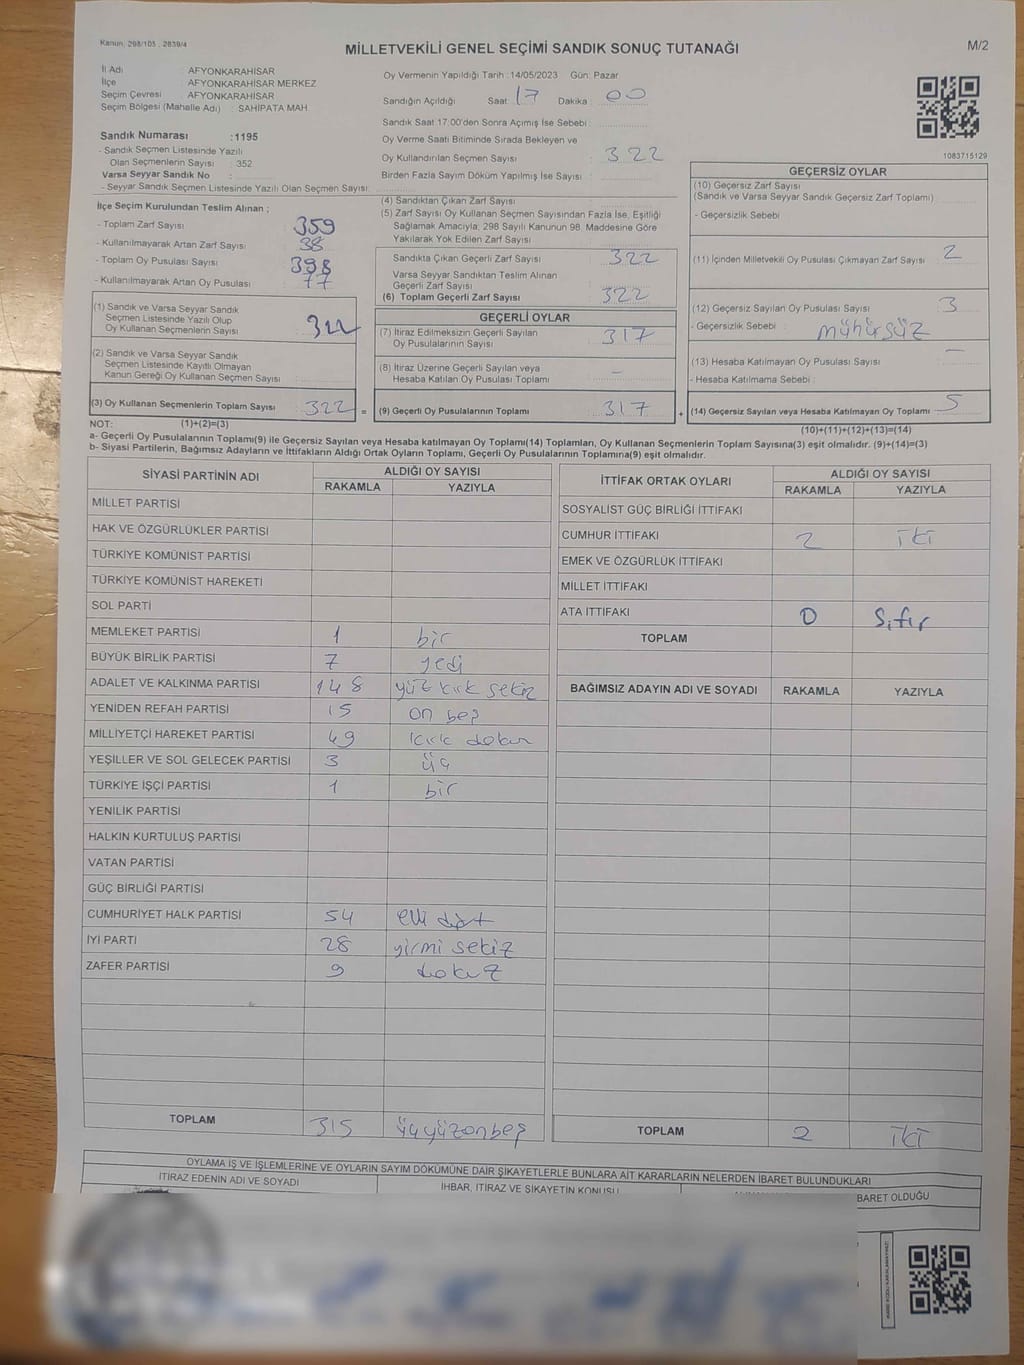 Kanun: 298/105 , 2839/4
MİLLETVEKİLİ GENEL SEÇİMİ SANDIK SONUÇ TUTANAĞI
M/2
İl Adı : AFYONKARAHİSAR
İlçe : AFYONKARAHİSAR MERKEZ
Seçim Çevresi : AFYONKARAHİSAR
Seçim Bölgesi (Mahalle Adı) : SAHİPATA MAH
Sandık Numarası :1195
- Sandık Seçmen Listesinde Yazılı
Olan Seçmenlerin Sayısı : 352
Varsa Seyyar Sandık No :
- Seyyar Sandık Seçmen Listesinde Yazılı Olan Seçmen Sayısı:
Oy Vermenin Yapıldığı Tarih :14/05/2023 Gün: Pazar
Sandığın Açıldığı Saat: 17 Dakika : 00
Sandık Saat 17:00'den Sonra Açımış İse Sebebi :
Oy Verme Saati Bitiminde Sırada Bekleyen ve
Oy Kullandırılan Seçmen Sayısı : 322
Birden Fazla Sayım Döküm Yapılmış İse Sayısı :
1083715129
İlçe Seçim Kurulundan Teslim Alınan ;
- Toplam Zarf Sayısı 359
- Kullanılmayarak Artan Zarf Sayısı 38
- Toplam Oy Pusulası Sayısı 398
- Kullanılmayarak Artan Oy Pusulası 77
(1) Sandık ve Varsa Seyyar Sandık
Seçmen Listesinde Yazılı Olup
Oy Kullanan Seçmenlerin Sayısı 322
(2) Sandık ve Varsa Seyyar Sandık
Seçmen Listesinde Kayıtlı Olmayan
Kanun Gereği Oy Kullanan Seçmen Sayısı
(3) Oy Kullanan Seçmenlerin Toplam Sayısı 322 =
(4) Sandıktan Çıkan Zarf Sayısı
(5) Zarf Sayısı Oy Kullanan Seçmen Sayısından Fazla İse, Eşitliği
Sağlamak Amacıyla; 298 Sayılı Kanunun 98. Maddesine Göre
Yakılarak Yok Edilen Zarf Sayısı
Sandıkta Çıkan Geçerli Zarf Sayısı 322
Varsa Seyyar Sandıktan Teslim Alınan
Geçerli Zarf Sayısı
(6) Toplam Geçerli Zarf Sayısı 322
GEÇERLİ OYLAR
(7) İtiraz Edilmeksizin Geçerli Sayılan
Oy Pusulalarının Sayısı 317
(8) İtiraz Üzerine Geçerli Sayılan veya
Hesaba Katılan Oy Pusulası Toplamı –
(9) Geçerli Oy Pusulalarının Toplamı 317 +
GEÇERSİZ OYLAR
(10) Geçersiz Zarf Sayısı
(Sandık ve Varsa Seyyar Sandık Geçersiz Zarf Toplamı)
- Geçersizlik Sebebi :
(11) İçinden Milletvekili Oy Pusulası Çıkmayan Zarf Sayısı 2
(12) Geçersiz Sayılan Oy Pusulası Sayısı 3
- Geçersizlik Sebebi : mühürsüz
(13) Hesaba Katılmayan Oy Pusulası Sayısı –
- Hesaba Katılmama Sebebi :
(14) Geçersiz Sayılan veya Hesaba Katılmayan Oy Toplamı 5
NOT: (1)+(2)=(3) (10)+(11)+(12)+(13)=(14)
a- Geçerli Oy Pusulalarının Toplamı(9) ile Geçersiz Sayılan veya Hesaba katılmayan Oy Toplamı(14) Toplamları, Oy Kullanan Seçmenlerin Toplam Sayısına(3) eşit olmalıdır. (9)+(14)=(3)
b- Siyasi Partilerin, Bağımsız Adayların ve İttifakların Aldığı Ortak Oyların Toplamı, Geçerli Oy Pusulalarının Toplamına(9) eşit olmalıdır.
SİYASİ PARTİNİN ADI ALDIĞI OY SAYISI
RAKAMLA YAZIYLA
MİLLET PARTİSİ
HAK VE ÖZGÜRLÜKLER PARTİSİ
TÜRKİYE KOMÜNİST PARTİSİ
TÜRKİYE KOMÜNİST HAREKETİ
SOL PARTİ
MEMLEKET PARTİSİ 1 bir
BÜYÜK BİRLİK PARTİSİ 7 yedi
ADALET VE KALKINMA PARTİSİ 148 yüz kırk sekiz
YENİDEN REFAH PARTİSİ 15 on beş
MİLLİYETÇİ HAREKET PARTİSİ 49 kırk dokuz
YEŞİLLER VE SOL GELECEK PARTİSİ 3 üç
TÜRKİYE İŞÇİ PARTİSİ 1 bir
YENİLİK PARTİSİ
HALKIN KURTULUŞ PARTİSİ
VATAN PARTİSİ
GÜÇ BİRLİĞİ PARTİSİ
CUMHURİYET HALK PARTİSİ 54 elli dört
İYİ PARTİ 28 yirmi sekiz
ZAFER PARTİSİ 9 dokuz
TOPLAM 315 üçyüzonbeş
İTTİFAK ORTAK OYLARI ALDIĞI OY SAYISI
RAKAMLA YAZIYLA
SOSYALİST GÜÇ BİRLİĞİ İTTİFAKI
CUMHUR İTTİFAKI 2 iki
EMEK VE ÖZGÜRLÜK İTTİFAKI
MİLLET İTTİFAKI
ATA İTTİFAKI 0 Sıfır
TOPLAM
BAĞIMSIZ ADAYIN ADI VE SOYADI RAKAMLA YAZIYLA
TOPLAM 2 iki
OYLAMA İŞ VE İŞLEMLERİNE VE OYLARIN SAYIM DÖKÜMÜNE DAİR ŞİKAYETLERLE BUNLARA AİT KARARLARIN NELERDEN İBARET BULUNDUKLARI
İTİRAZ EDENİN ADI VE SOYADI
İHBAR, İTİRAZ VE ŞİKAYETİN KONUSU
BARET OLDUĞU